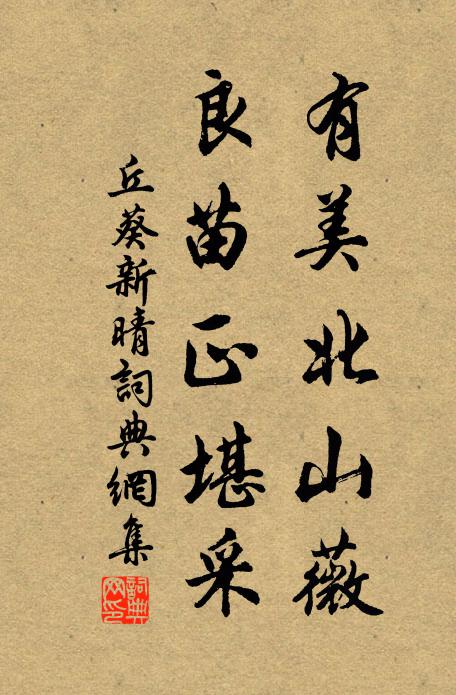 有美北山薇
良苗正堪采
丘葵新晴詞典網集
詞典网印